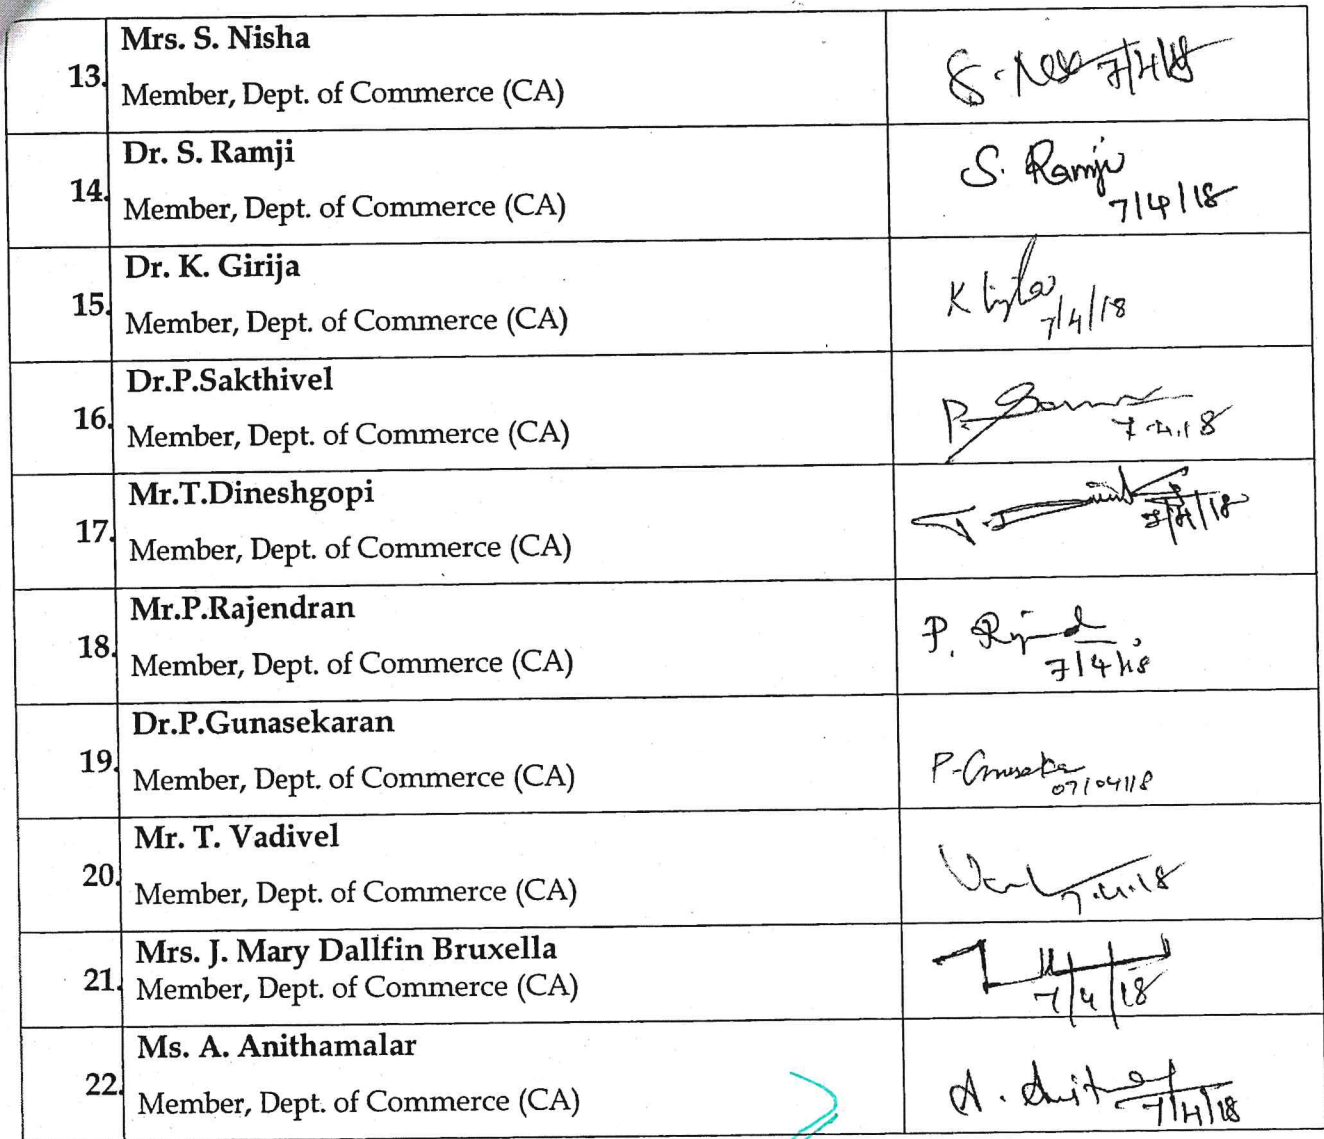 13.
Mrs. S. Nisha
Member, Dept. of Commerce (CA)
7/4/18
14.
Dr. S. Ramji
Member, Dept. of Commerce (CA)
S. Ramji
7/4/18
15.
Dr. K. Girija
Member, Dept. of Commerce (CA)
7/4/18
16.
Dr.P.Sakthivel
Member, Dept. of Commerce (CA)
7.4.18
17.
Mr.T.Dineshgopi
Member, Dept. of Commerce (CA)
7/4/18
18.
Mr.P.Rajendran
Member, Dept. of Commerce (CA)
7/4/18
19.
Dr.P.Gunasekaran
Member, Dept. of Commerce (CA)
07/04/18
20.
Mr. T. Vadivel
Member, Dept. of Commerce (CA)
7.4.18
21.
Mrs. J. Mary Dallfin Bruxella
Member, Dept. of Commerce (CA)
7/4/18
22.
Ms. A. Anithamalar
Member, Dept. of Commerce (CA)
7/4/18